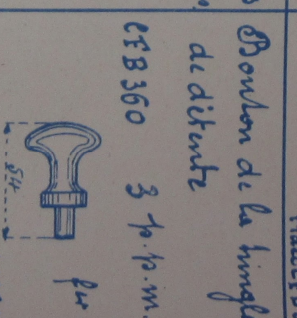 Bouton de la tringle
de détente
CFB360 3 p.p.m.
fer
54